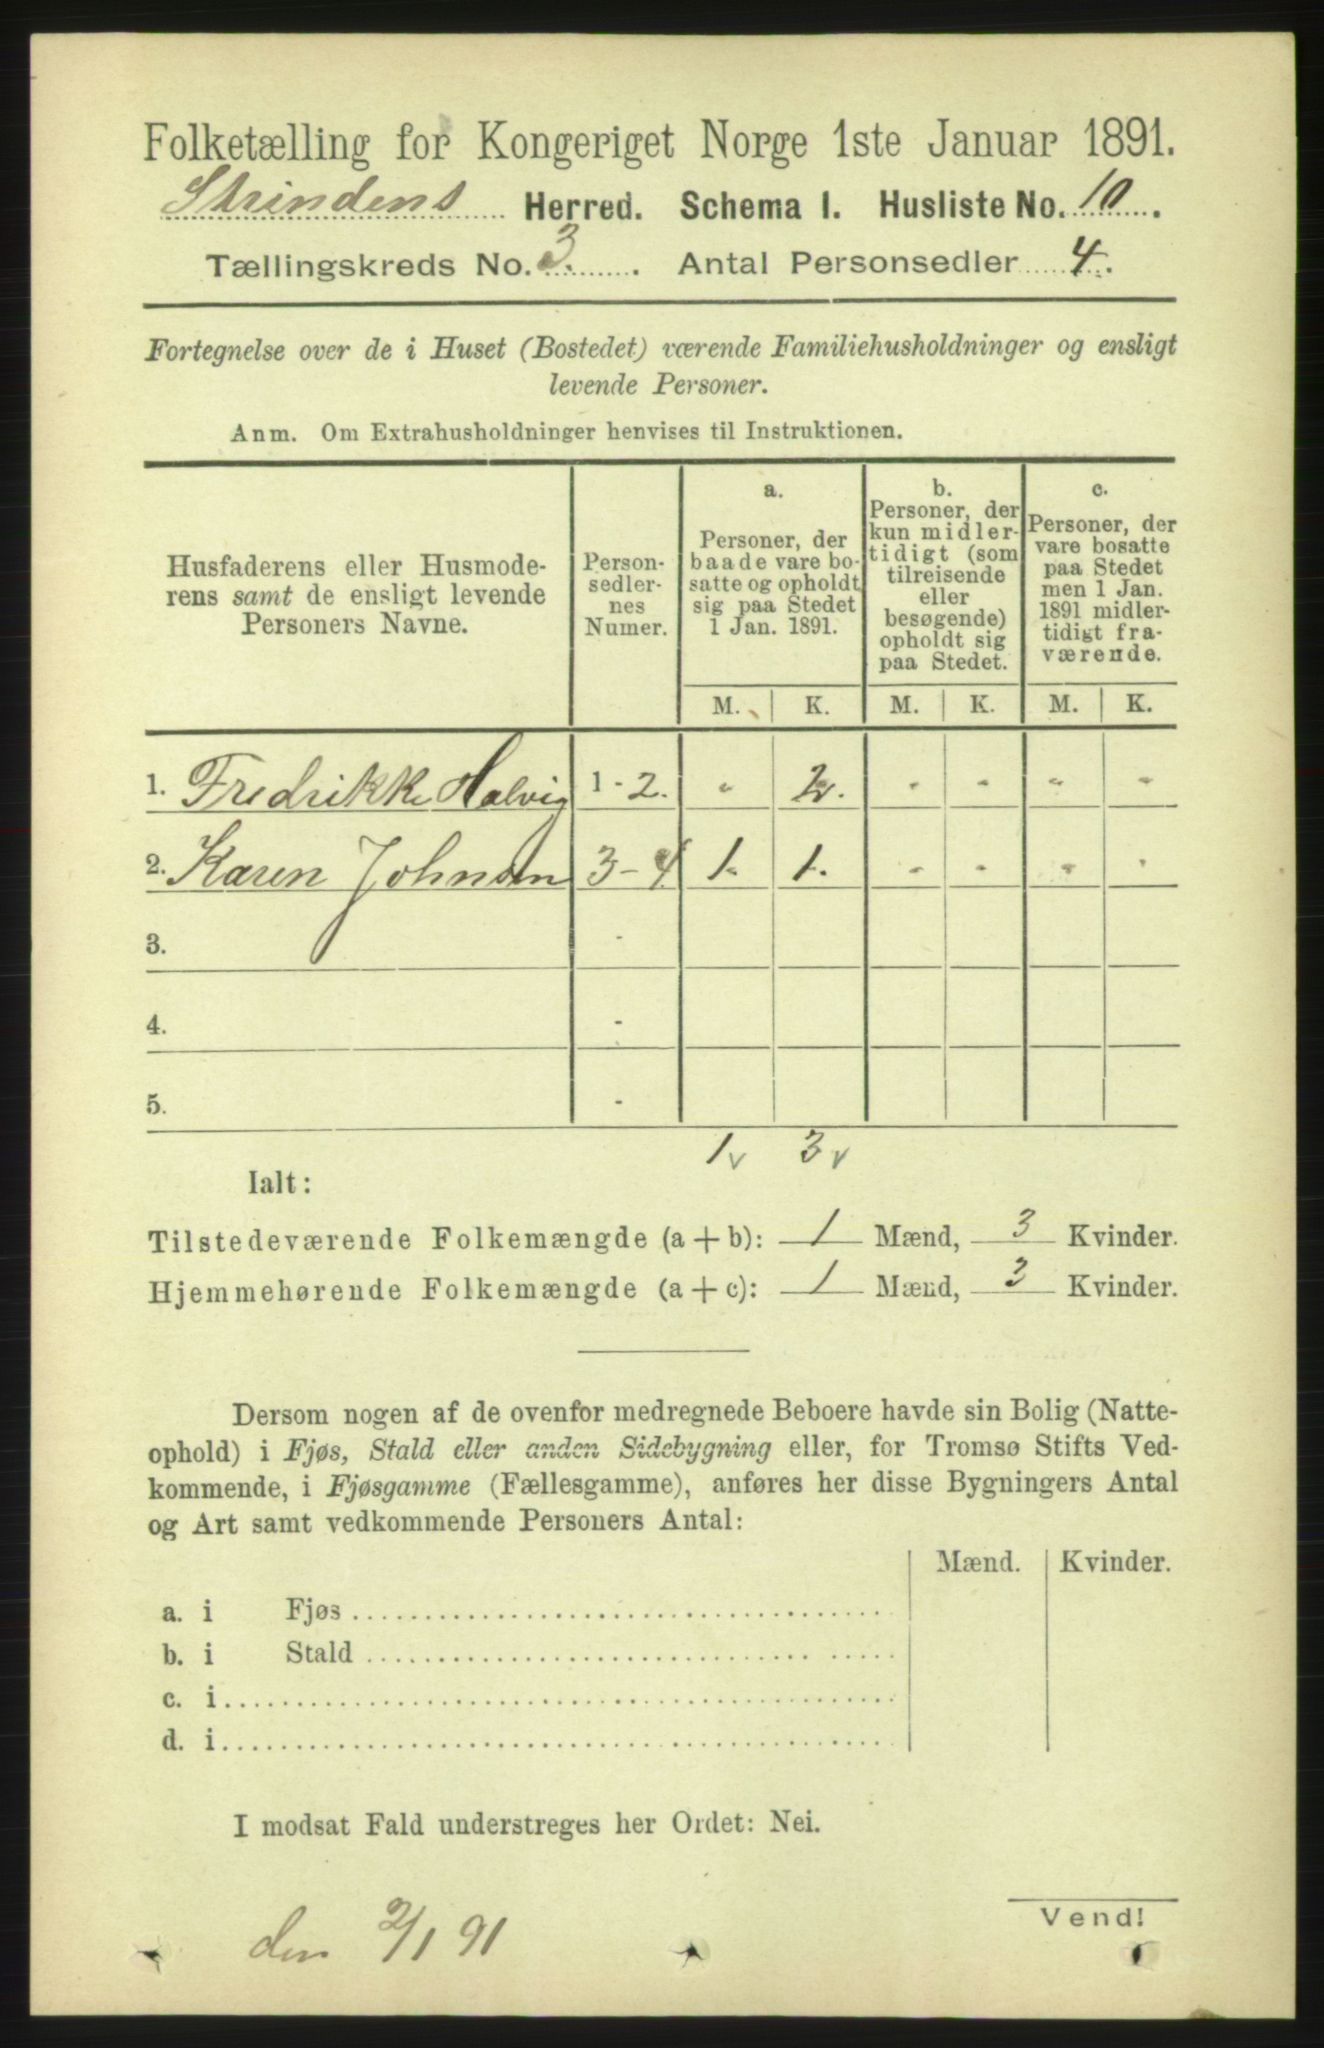 Folketælling for Kongeriget Norge 1ste Januar 1891.
Strindens Herred. Schema 1. Husliste No. 10.
Tællingskreds No. 3. Antal Personsedler 4.
Fortegnelse over de i Huset (Bostedet) værende Familiehusholdninger og ensligt
levende Personer.
Anm. Om Extrahusholdninger henvises til Instruktionen.
Husfaderens eller Husmode-
rens samt de ensligt levende
Personers Navne.
Person-
sedler-
nes
Numer.
a.
Personer, der
baade vare bo-
satte og opholdt
sig paa Stedet
1 Jan. 1891.
b.
Personer, der
kun midler-
tidigt (som
tilreisende
eller
besøgende)
opholdt sig
paa Stedet.
c.
Personer, der
vare bosatte
paa Stedet
men 1 Jan.
1891 midler-
tidigt fra-
værende.
M. K. M. K. M. K.
1. Fredrikke Halvig 1 - 2. " 2. - - - -
2. Karen Johnsen 3 - 4 1. 1. - - - -
3. -
4. -
5. -
1 v 3 v
Ialt:
Tilstedeværende Folkemængde (a + b): 1 Mænd, 3 Kvinder.
Hjemmehørende Folkemængde (a + c): 1 Mænd, 3 Kvinder.
Dersom nogen af de ovenfor medregnede Beboere havde sin Bolig (Natte-
ophold) i Fjøs, Stald eller anden Sidebygning eller, for Tromsø Stifts Ved-
kommende, i Fjøsgamme (Fællesgamme), anføres her disse Bygningers Antal
og Art samt vedkommende Personers Antal:
Mænd. Kvinder.
a. i Fjøs
b. i Stald
c. i
d. i
I modsat Fald understreges her Ordet: Nei.
Vend!
den 2/1 91